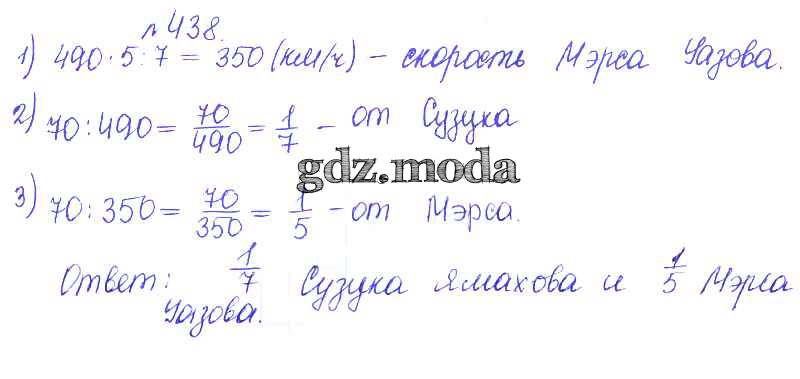 №438.
1) 490·5:7 = 350 (км/ч) – скорость Мэрса Уазова.
2) 70:490 = 70/490 = 1/7 – от Сузука
gdz.moda
3) 70:350 = 70/350 = 1/5 – от Мэрса.
Ответ: 1/7 Сузука Ямахова и 1/5 Мэрса
Уазова.